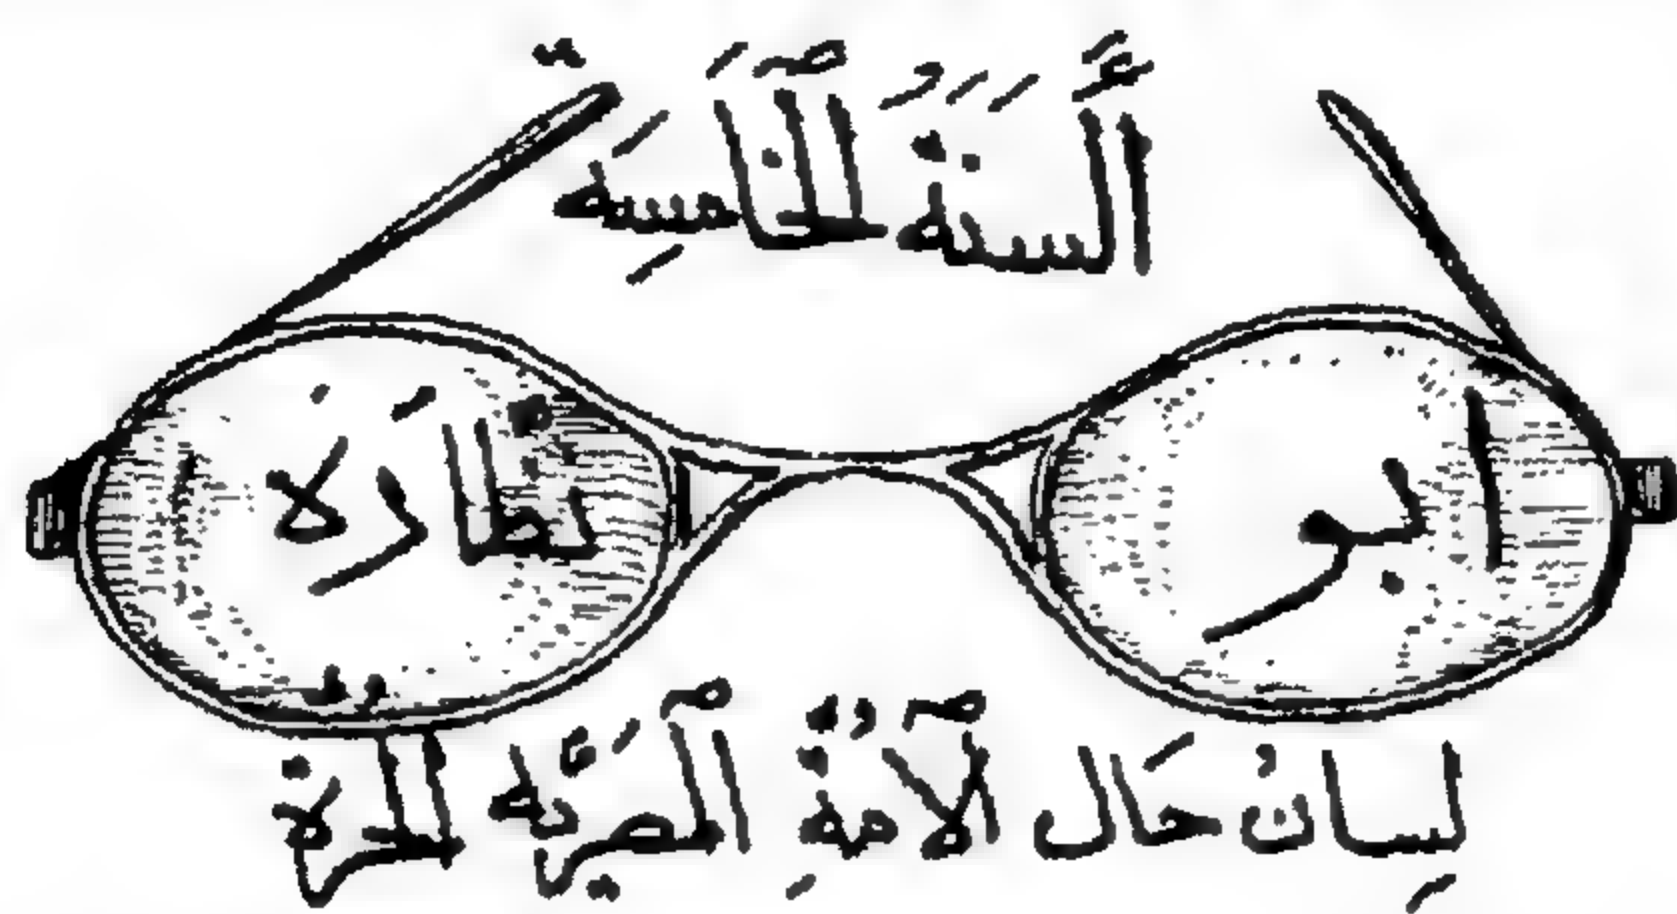 السَّنَةُ الْخَامِسَة
ابو نظّارَة
لِسانُ حَال الْأمةِ الْمصريَّة الحرة